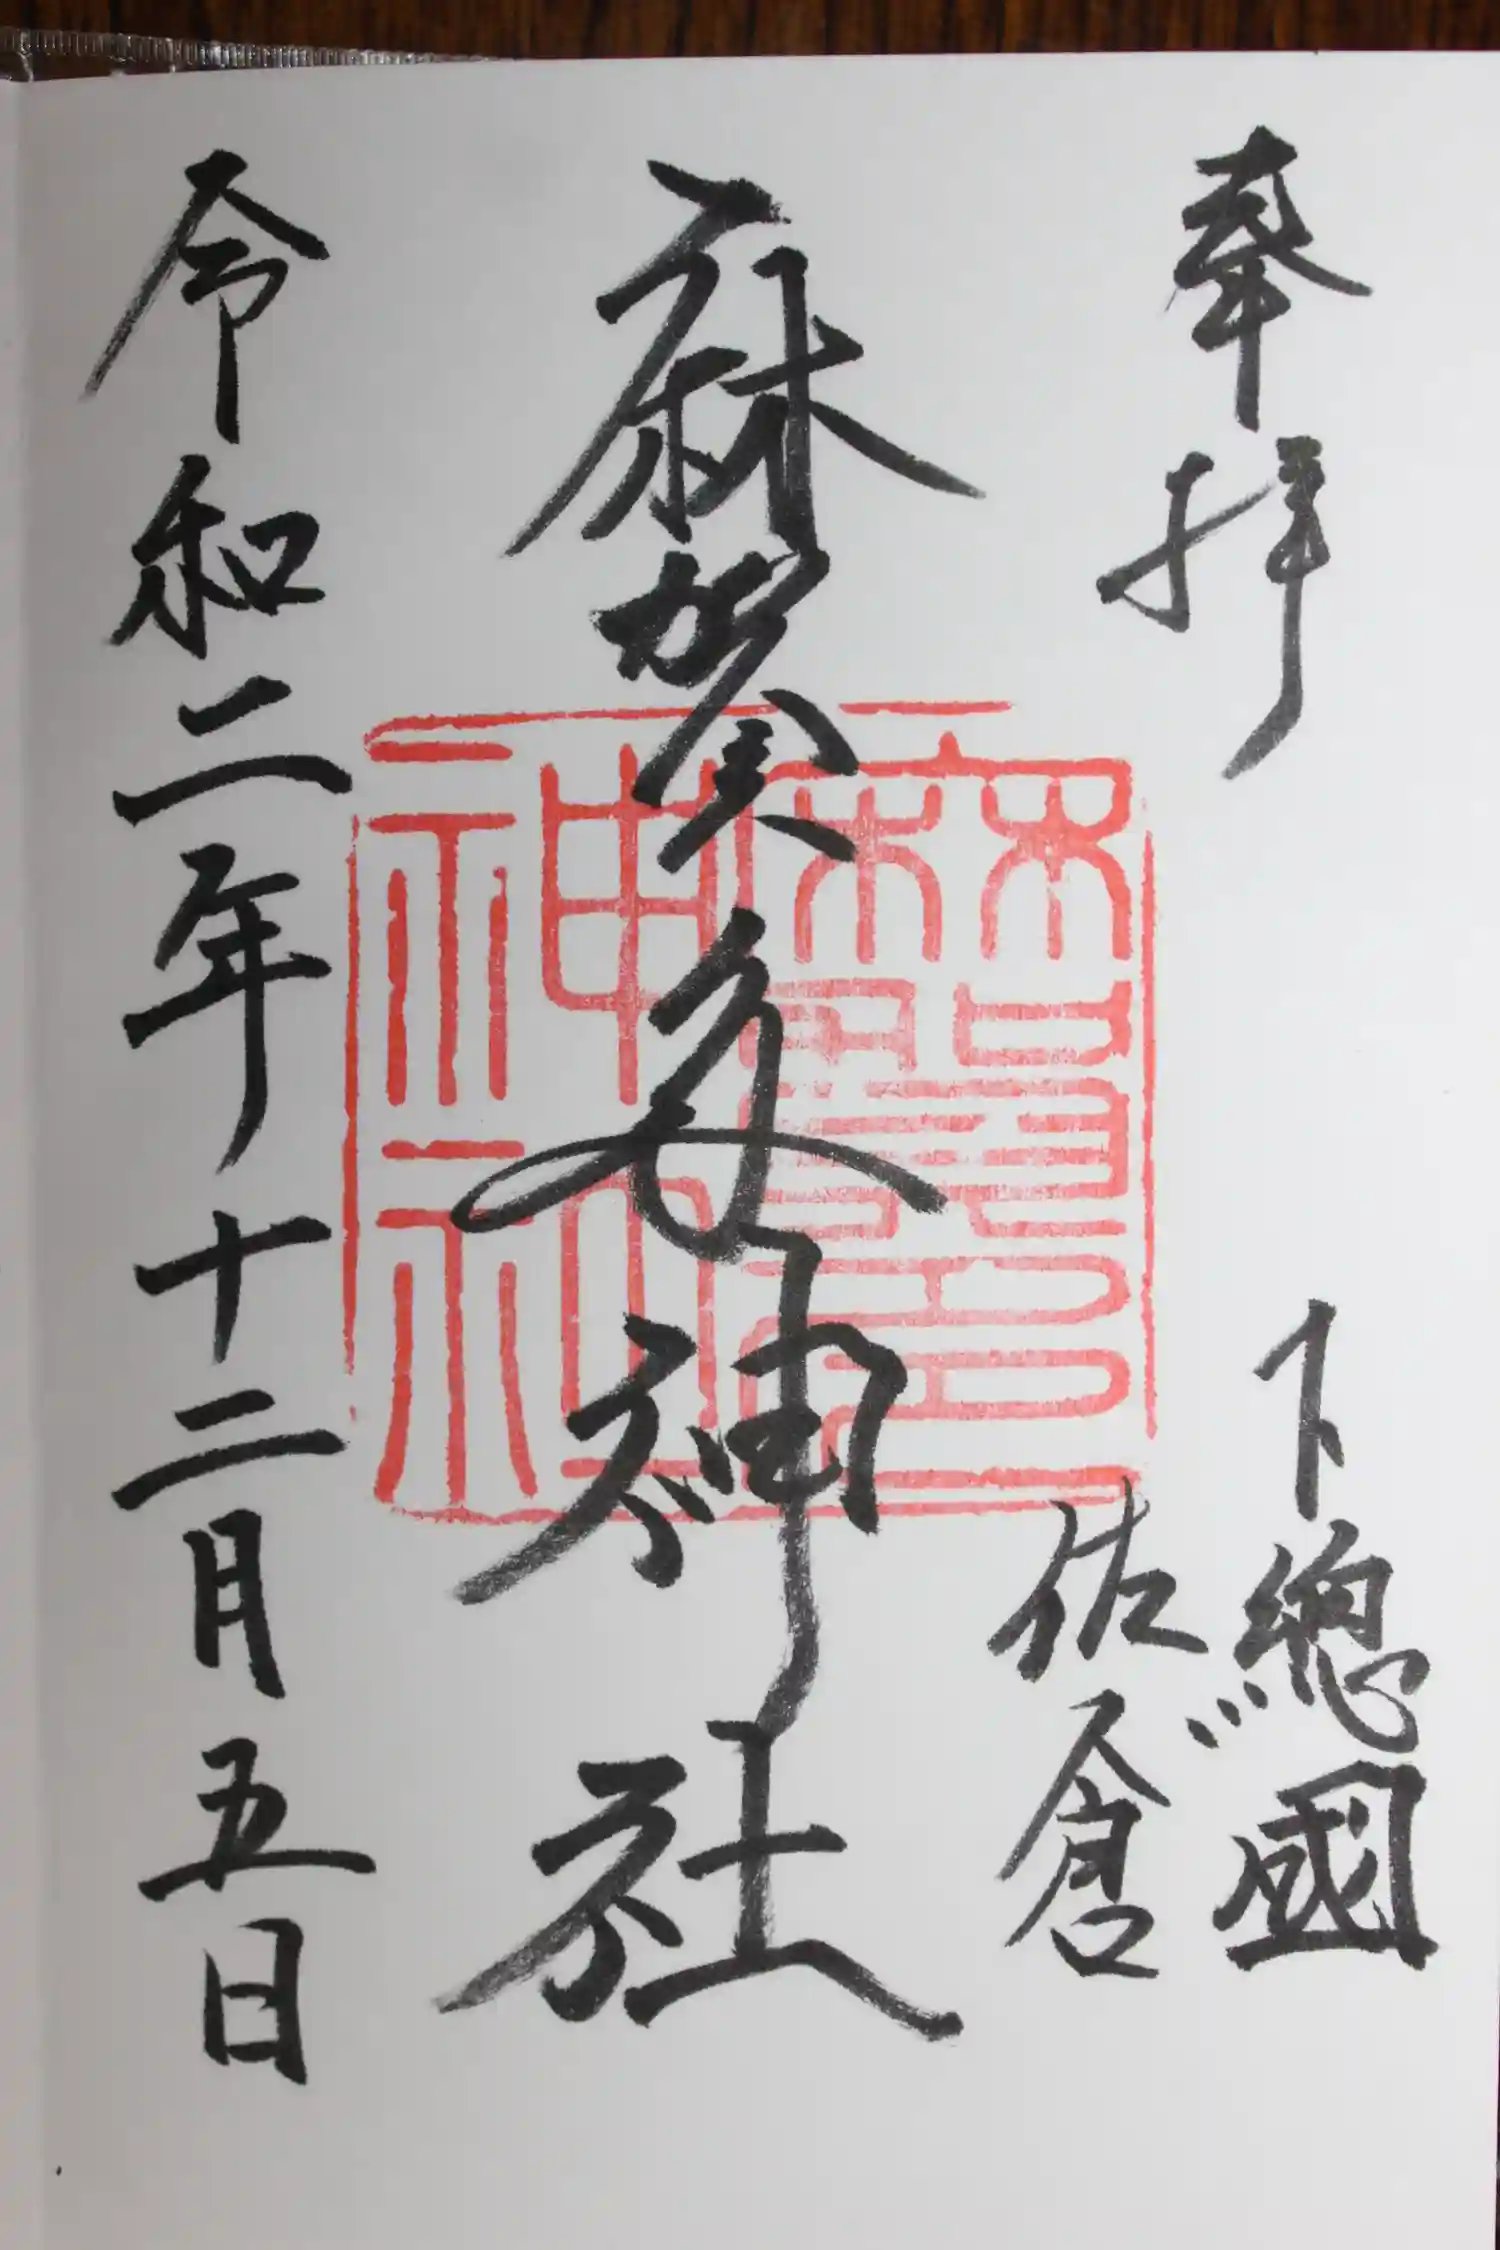 奉拝
下總國
佐倉
麻賀多神社
令和二年十二月五日
麻賀多
神社